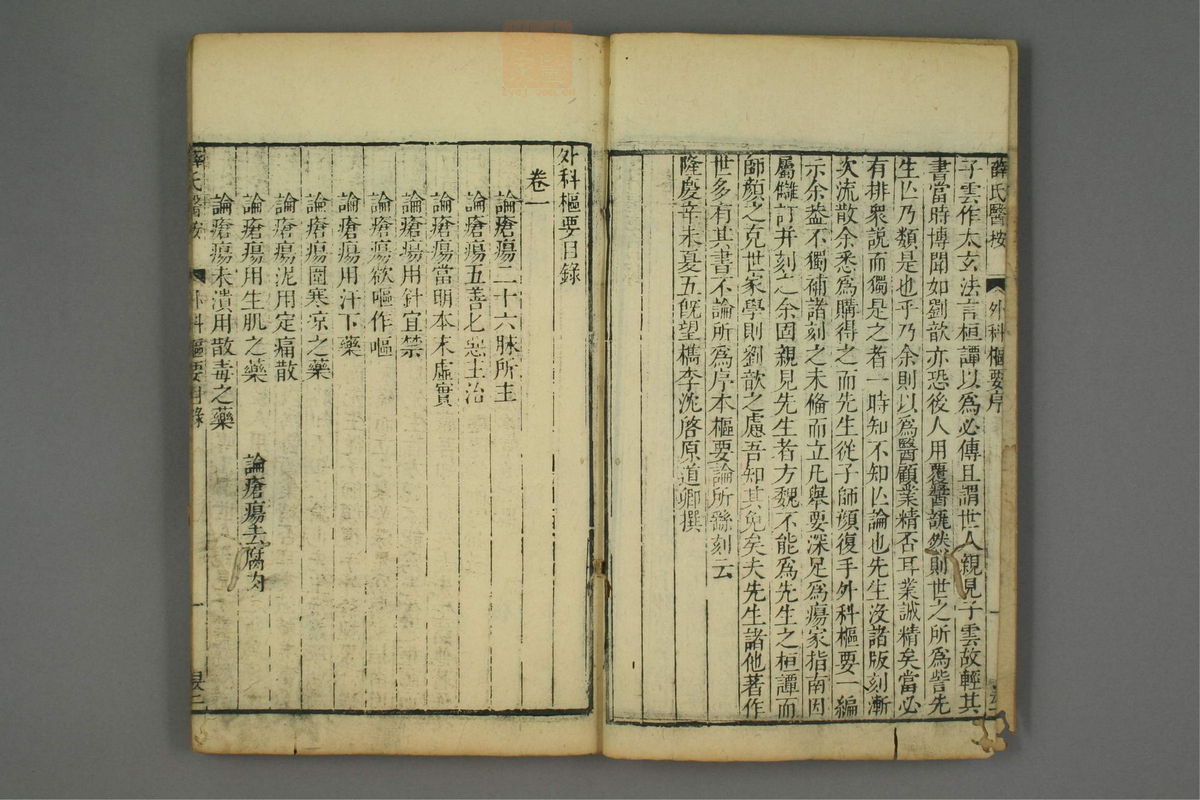 薛氏醫按
外科樞要序
一
子雲作太玄法言桓譚以爲必傳且謂世人親見子雲故輕其
書當時博聞如劉歆亦恐後人用覆醬瓿然則世之所爲訾先
生仏乃類是也乎乃余則以爲醫顧業精否耳業誠精矣當必
有排衆説而獨是之者一時知不知仏論也先生沒諸版刻漸
次流散余悉爲購得之而先生從子師顔復手外科樞要一編
示余葢不獨補諸刻之未俻而立凡舉要深足爲瘍家指南因
屬讎訂并刻之余固親見先生者方魏不能爲先生之桓譚而
師顔之克世家學則劉歆之慮吾知其免矣夫先生諸他著作
世多有其書不論所爲序本樞要論所繇刻云
隆慶辛未夏五旣望檇李沈啓原道卿撰
外科樞要目錄
卷一
論瘡瘍二十六脉所主
論瘡瘍五善七惡主治
論瘡瘍當明本末虛實
論瘡瘍用針宜禁
論瘡瘍欲嘔作嘔
論瘡瘍用汗下藥
論瘡瘍圍寒凉之藥
論瘡瘍泥用定痛散
論瘡瘍用生肌之藥 論瘡瘍去腐肉
論瘡瘍未潰用散毒之藥
薛氏醫按
外科樞要目錄
一